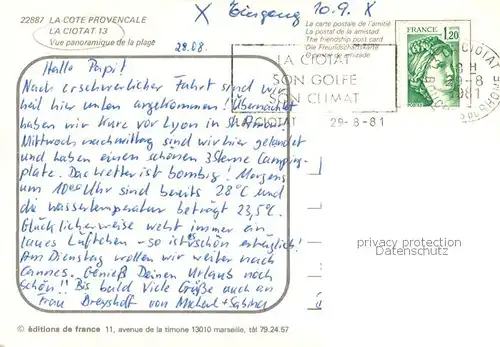 22887 LA COTE PROVENCALE
LA CIOTAT 13
Vue panoramique de la plage
X Eingang 10.9. X
La carte postale de l'amitié
La postal de la amistad
The friendship post card
Die Freundschaftskarte
FRANCE
1,20
POSTES
LA CIOTAT
SON GOLFE
SON CLIMAT
CIOTAT
29-8-81
H
29-8-
1981
28.08.
Hallo Papi!
Nach erschwerlicher Fahrt sind wir
heil hier unten angekommen! Übernachtet
haben wir kurz vor Lyon in St. Amour.
Mittwoch nachmittag sind wir hier gelandet
und haben einen schönen 3 Sterne Camping-
platz. Das Wetter ist bombig! Morgens
um 10⁰⁰ Uhr sind bereits 28°C und
die Wassertemperatur beträgt 23,5°C.
Glücklicherweise weht immer ein
laues Lüftchen - so ist's schön erträglich!
Am Dienstag wollen wir weiter nach
Cannes. Genieß Deinen Urlaub noch
schön!! Bis bald viele Grüße auch an
Frau von Michael + Sabine
privacy protection
AnsKaDi
© éditions de france 11, avenue de la timone 13010 marseille, tél 79.24.57